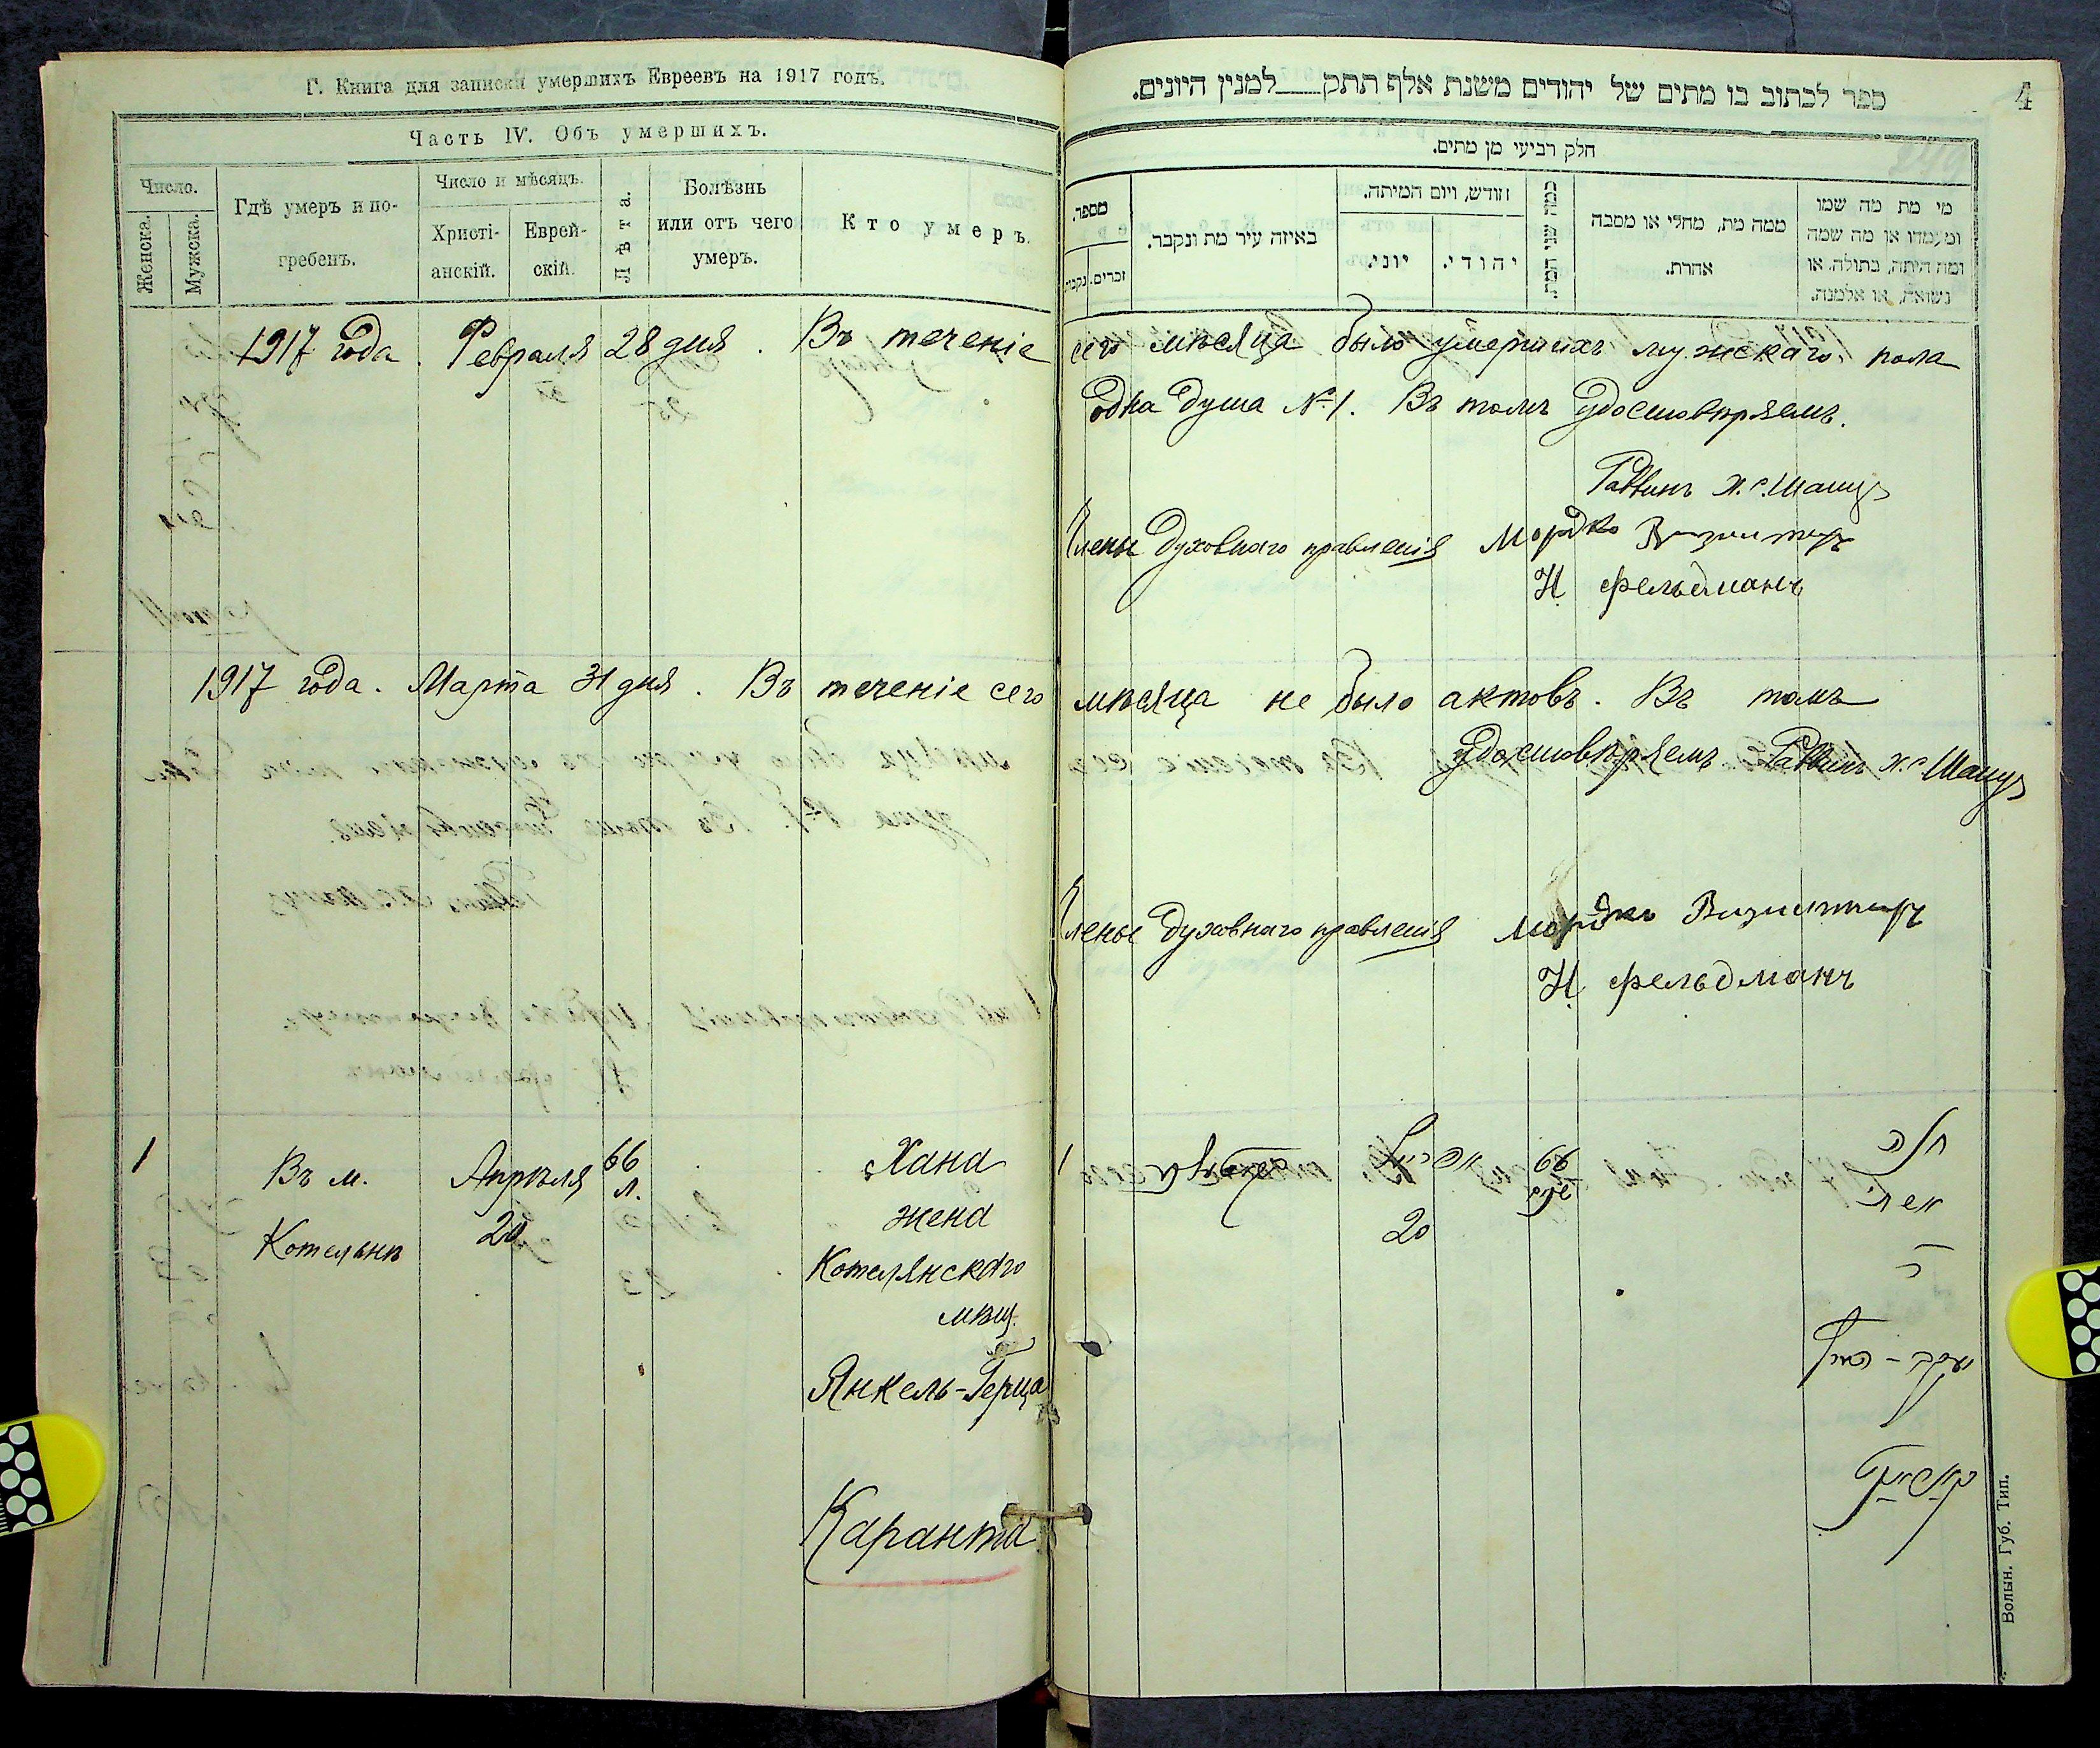 Г. Книга для записки умершихъ Евреевъ на 1917 годъ.
Часть IV. Объ умершихъ.
Число.
Женска.
Мужска.
Гдѣ умеръ и по-
гребенъ.
Число и мѣсяцъ.
Христі-
анскій.
Еврей-
скій.
Лѣта.
Болѣзнь
или отъ чего
умеръ.
Кто умеръ.
ספר לכתוב בו מתים של יהודים משנת אלף תתק___למנין היונים.
4
חלק רביעי מן מתים.
מספר.
זכרים.
נקבו
באיזה עיר מת ונקבר.
חודש, ויום המיתה.
יוני.
יהודי.
כמה שני המת.
ממה מת, מחלי או מסבה
אחרת.
מי מת מה שמו
ומעמדו או מה שמה
ומה היתה, בתולה, או
נשואה, או אלמנה.
1917 года. Февраля 28 дня. Въ теченіе сего мѣсяца было умершихъ мужскаго пола
одна душа №1. Въ томъ удостовѣряемъ.
Раввинъ Х. с. Шацъ
Члены Духовнаго правленія Мордко
Н Фельдманъ
1917 года. Марта 31 дня. Въ теченіе сего мѣсяца не было актовъ. Въ томъ
удостовѣряемъ Раввинъ Х. с Шацъ
Члены Духовнаго правленія Мордко
Н Фельдманъ
1
Въ м.
Котельнѣ
Апрѣля
20
66
л.
Хана
жена
Котелянскаго
мѣщ.
Янкель-Герша
Каранта
1
אפריל
20
66
חנה
אשת
יעקב-
Волын. Губ. Тип.